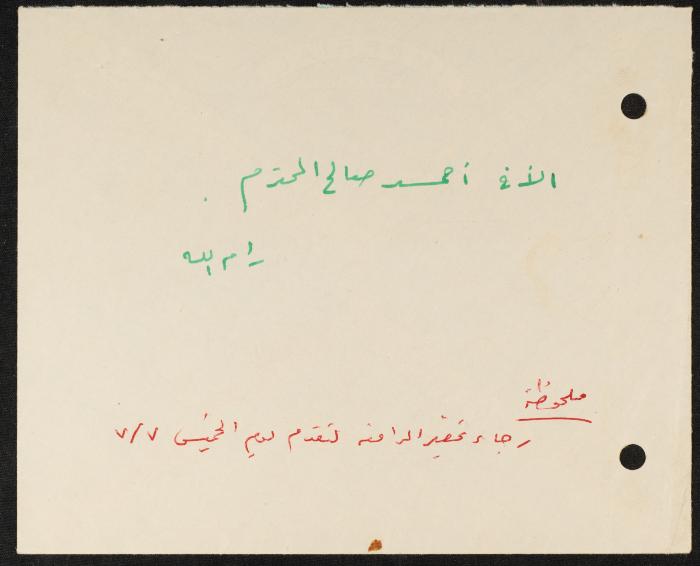 الأخ أحمد صالح المحترم
رام الله
ملحوظة
رجاء تحضير المرافعة لتقدم يوم الخميس ٧/٧